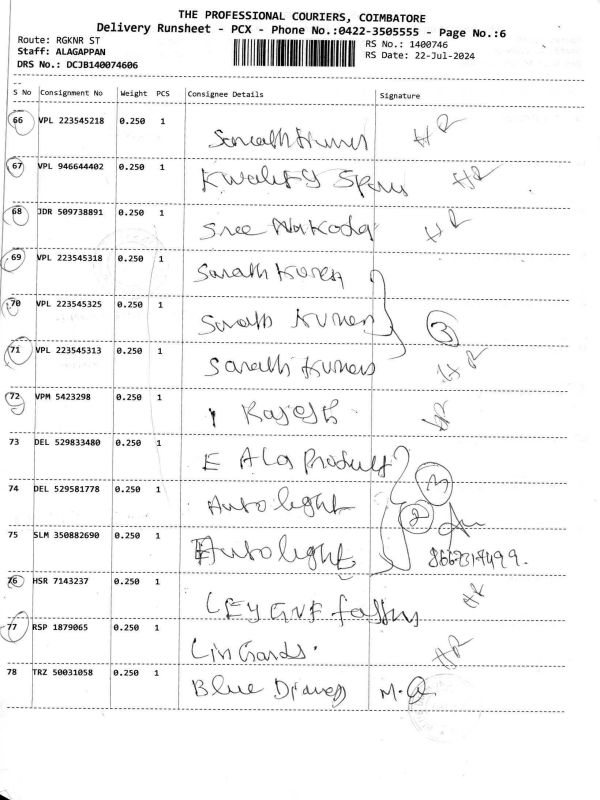 THE PROFESSIONAL COURIERS, COIMBATORE
Delivery Runsheet - PCX - Phone No.:0422-3505555 - Page No.:6
Route: RGKNR ST
Staff: ALAGAPPAN
DRS No.: DCJB140074606
RS No.: 1400746
RS Date: 22-Jul-2024
S No Consignment No Weight PCS Consignee Details Signature
66 VPL 223545218 0.250 1
67 VPL 946644402 0.250 1 Kwality
68 JDR 509738891 0.250 1 Sree Nakoda
69 VPL 223545318 0.250 1 Sarath
70 VPL 223545325 0.250 1 Sarath Kumar
3
71 VPL 223545313 0.250 1 Sarath Kumar
72 VPM 5423298 0.250 1 Rajesh
73 DEL 529833480 0.250 1 E Ala Product
74 DEL 529581778 0.250 1 Auto light
2
75 SLM 350882690 0.250 1 Auto light
76 HSR 7143237 0.250 1
77 RSP 1879065 0.250 1
78 TRZ 50031058 0.250 1 Blue